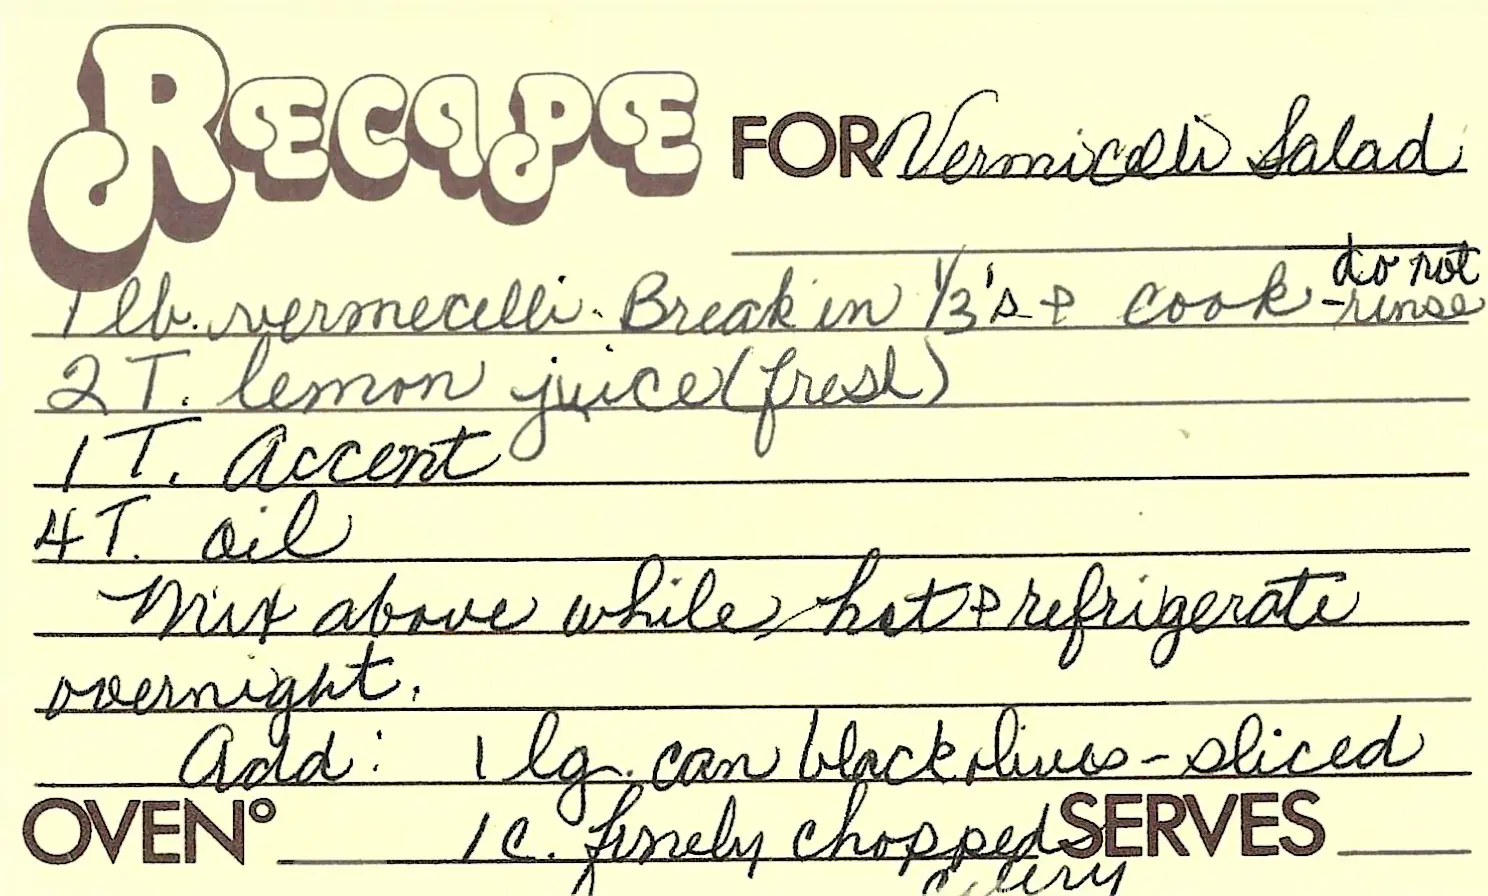 RECIPE FOR Vermicelli Salad
1 lb. vermecelli. Break in 1/3's & cook - do not rinse
2 T. lemon juice (fresh)
1 T. Accent
4 T. oil
Mix above while hot & refrigerate
overnight.
Add: 1 lg. can black olives - sliced
OVEN° 1 c. finely chopped SERVES
celery